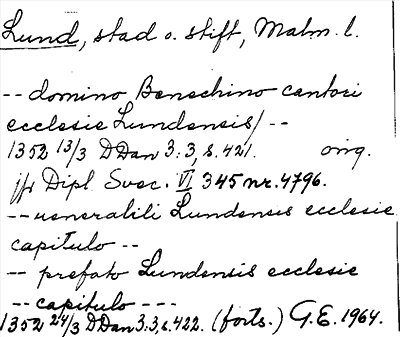 Lund, stad o. stift, Malm. l.
-- domino Benechino cantori
ecclesie Lundensis/ --
1352 13/3 DDan 3:3, s. 421. orig.
jfr Dipl Svec. VI 345 nr. 4796.
-- uenerabili Lundensis ecclesie
capitulo --
-- prefato Lundensis ecclesie
-- capitulo ---
1352 24/3 DDan 3:3, s. 422. (forts.) G.E. 1964.